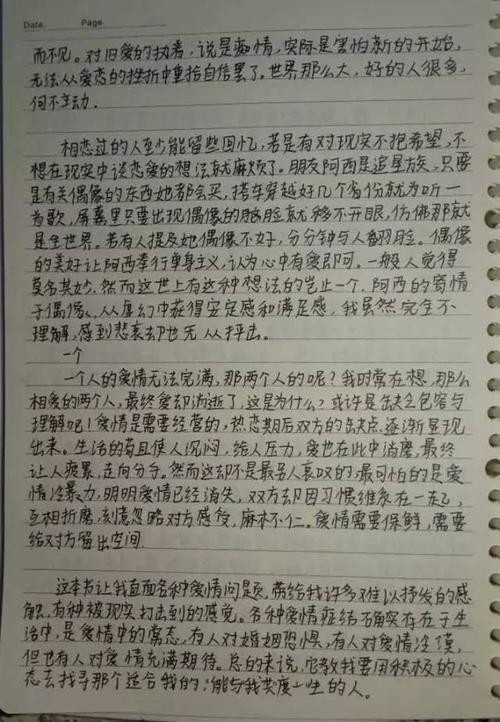 Date. Page
而不见。对旧爱的执着，说是痴情，实际是害怕新的开始，
无法从爱恋的挫折中重拾自信罢了。世界那么大，好的人很多，
何不主动．
相恋过的人至少能留些回忆，若是有对现实不抱希望，不
想在现实中谈恋爱的想法就麻烦了。朋友阿西是追星族，只要
是有关偶像的东西她都会买，搭车穿越好几个省份就为听一
首歌，屏幕里只要出现偶像的脸脸就移不开眼，仿佛那就
是全世界。若有人提及她偶像不好，分分钟与人翻脸。偶像
的美好让阿西奉行单身主义，认为心中有爱即可。一般人觉得
莫名其妙，然而这世上有这种想法的岂止一个，阿西的寄情
于偶像，从虚幻中获得安定感和满足感，我虽然完全不
理解，感到悲哀却也无从抨击。
一个
一个人的爱情无法完满，那两个人的呢？我时常在想，那么
相爱的两个人，最终爱却消逝了，这是为什么？或许是缺乏包容与
理解吧！爱情是需要经营的，热恋期后双方的缺点逐渐显现
出来。生活的苟且使人沉闷，给人压力，爱也在此中消磨，最终
让人疲累，走向分手。然而这却不是最另人哀叹的，最可怕的是爱
情冷暴力，明明爱情已经消失，双方却因习惯维系在一起，
互相折磨，刻意忽略对方感受，麻木不仁。爱情需要保鲜，需要
给对方留出空间．
这本书让我直面各种爱情问题，带给我许多难以抒发的感
触，有种被现实打击到的感觉。各种爱情症结确实存在于生
活中，是爱情中的常态，有人对婚姻恐惧，有人对爱情冷漠，
但也有人对爱情充满期待。总的来说，它教我要用积极的心
态去找寻那个适合我的，能与我共度一生的人。